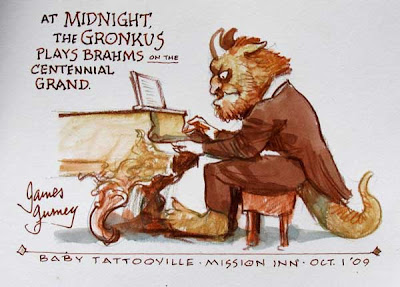 AT MIDNIGHT,
THE GRONKUS
PLAYS BRAHMS ON THE
CENTENNIAL
GRAND.
James
Gurney
BABY TATTOOVILLE · MISSION INN · OCT. 1 '09